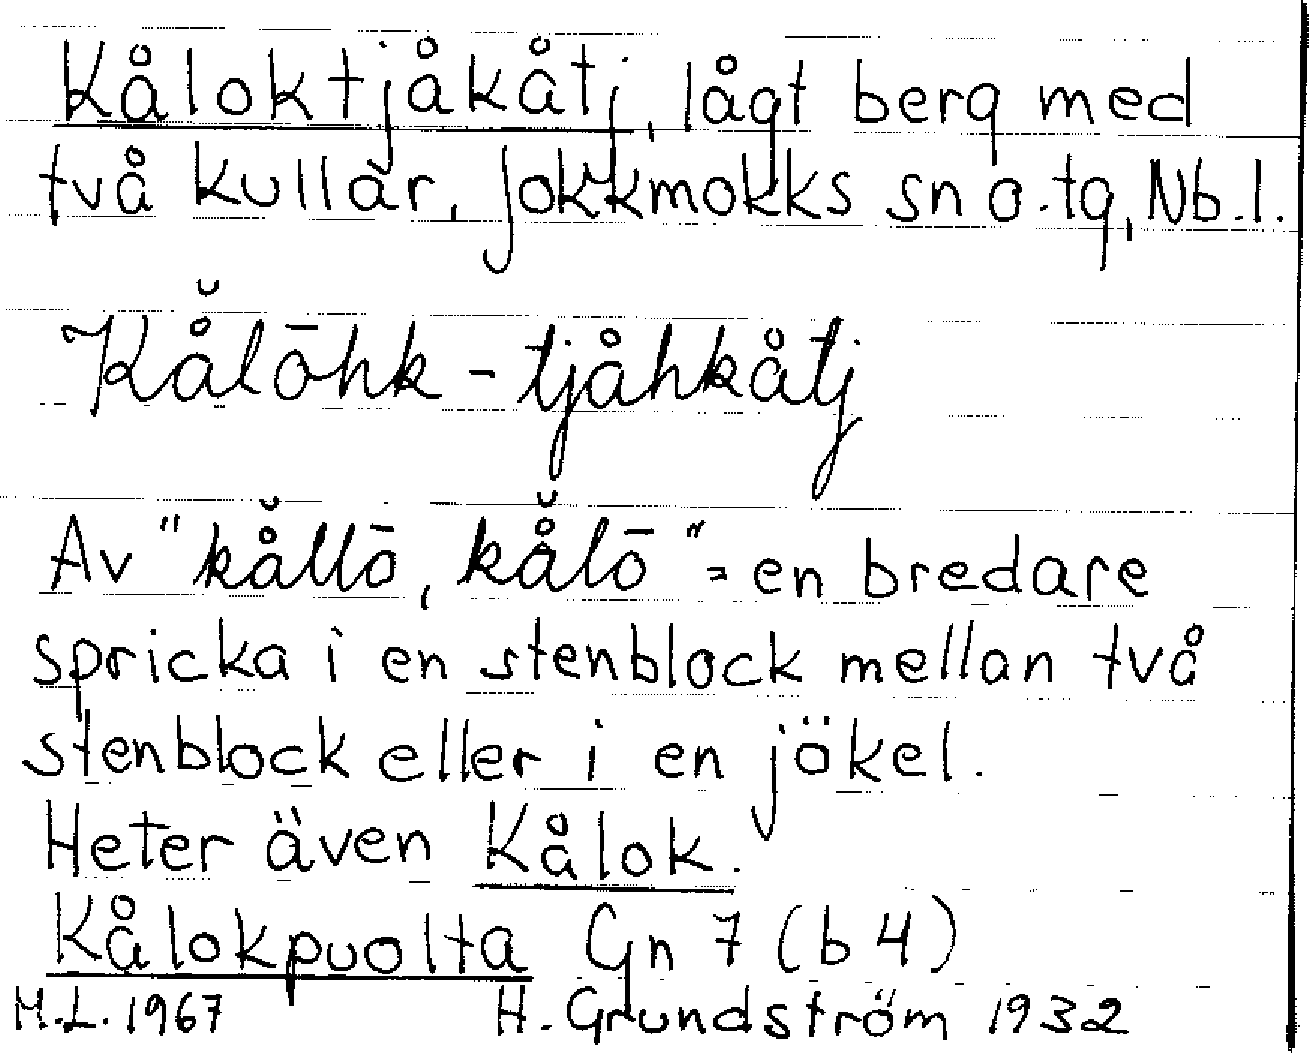 Kåloktjåkåtj, lågt berg med
två kullar, Jokkmokks sn o. tg, Nb. l.
Kå̆lōhk - tjåhkåtj
Av "kå̆llō, kå̆lō" = en bredare
spricka i en stenblock mellan två
stenblock eller i en jökel.
Heter även Kålok.
Kålokpuolta Gn 7 (b 4)
M.L. 1967 H. Grundström 1932